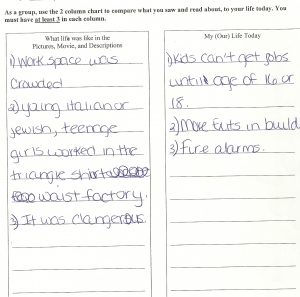 As a group, use the 2 column chart to compare what you saw and read about, to your life today. You
must have at least 3 in each column.
What life was like in the
Pictures, Movie, and Descriptions
1) Work space was
crowded
2) young italian or
jewish, teenage
girls worked in the
triangle shirt
waist factory.
3) It was dangerous.
My (Our) Life Today
1) Kids can't get jobs
until age of 16 or
18.
2) More exits in build
3) Fire alarms.